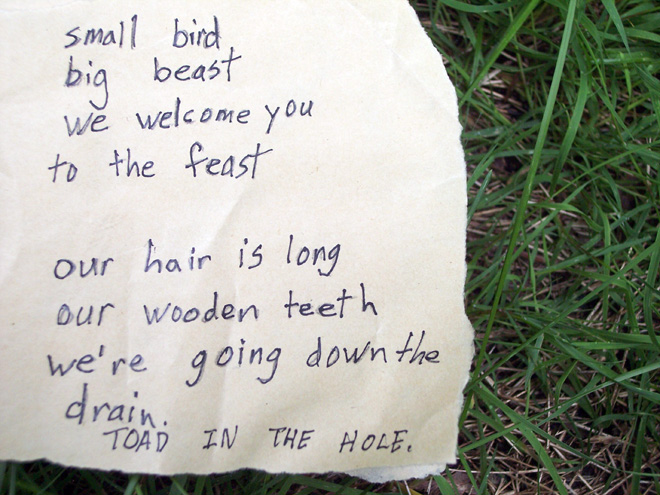 small bird
big beast
we welcome you
to the feast
our hair is long
our wooden teeth
we're going down the
drain.
TOAD IN THE HOLE.